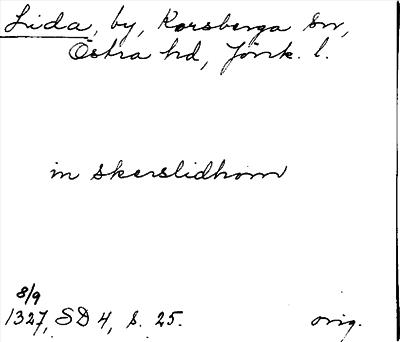 Lida, by, Korsberga sn,
Östra hd, Jönk. l.
in skerslidhom
8/9
1327, SD 4, s. 25. orig.